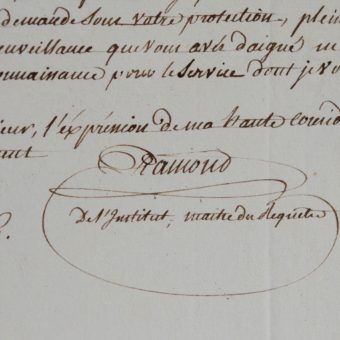 demande sous votre protection, plein
veillance que vous avés daigné m
onnaissance pour le service dont je vo
ieur, l'expression de ma haute consid
Ramond
De l'Institut, maitre des Requetes